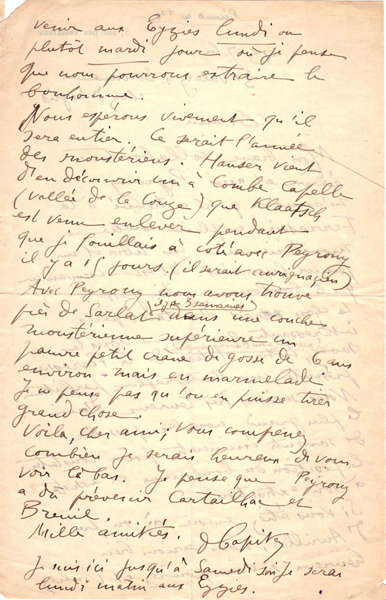 venir aux Eyzies lundi ou
plutôt mardi jour où je pense
que nous pourrons extraire le
bonhomme.
Nous espérons vivement qu'il
sera entier. Ce serait l'année
des moustériens. Hauser vient
d'en découvrir un à Combe Capelle
(vallée de la Couze) que Klaatsch
est venu enlever pendant
que je fouillais à coté avec Peyrony
il y a 15 jours (il serait aurignacien)
Avec Peyrony nous avons trouvé
il y a 3 semaines
près de Sarlat dans une couche
moustérienne supérieure un
pauvre petit crane de gosse de 6 ans
environ - mais en marmelade
Je ne pense pas qu'on en puisse tirer
grand chose
Voila, cher ami; vous comprenez
combien je serais heureux de vous
voir là bas. Je pense que Peyrony
a dû prévenir Cartailhac et
Breuil.
Mille amitiés. D Capitan
Je suis ici jusqu'à Samedi soir je serai
lundi matin aux Eyzies.